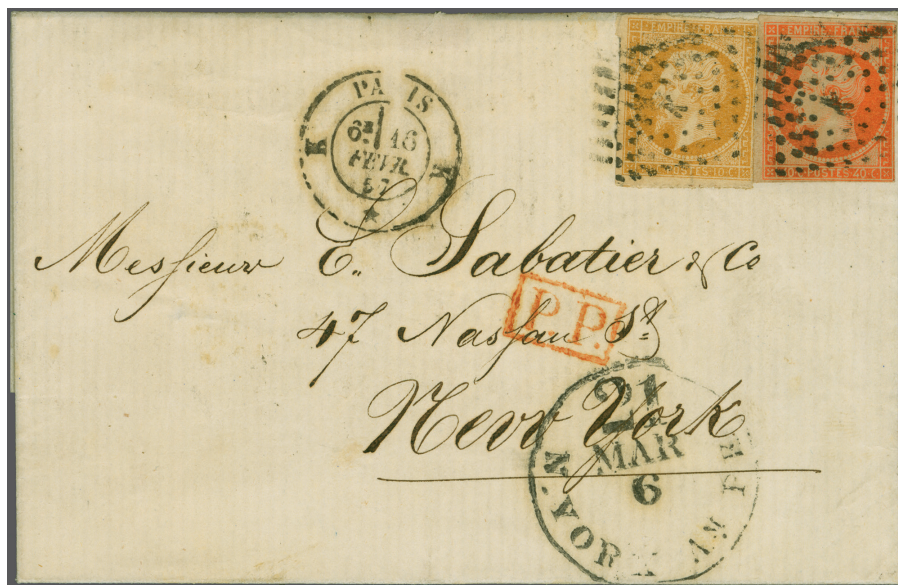 EMPIRE FRANC
POSTES 10 C
EMPIRE FRANC
40 C POSTES 40 C
PARIS
K K
6E 16
FEVR.
57
Messieurs E. Sabatier & Co
P.P.
47 Nassau St
New York
21
MAR
6
N. YORK AM. P